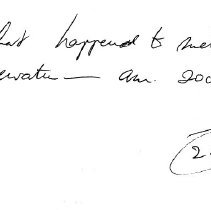 hat happened to me
ewater — am. 200
2.